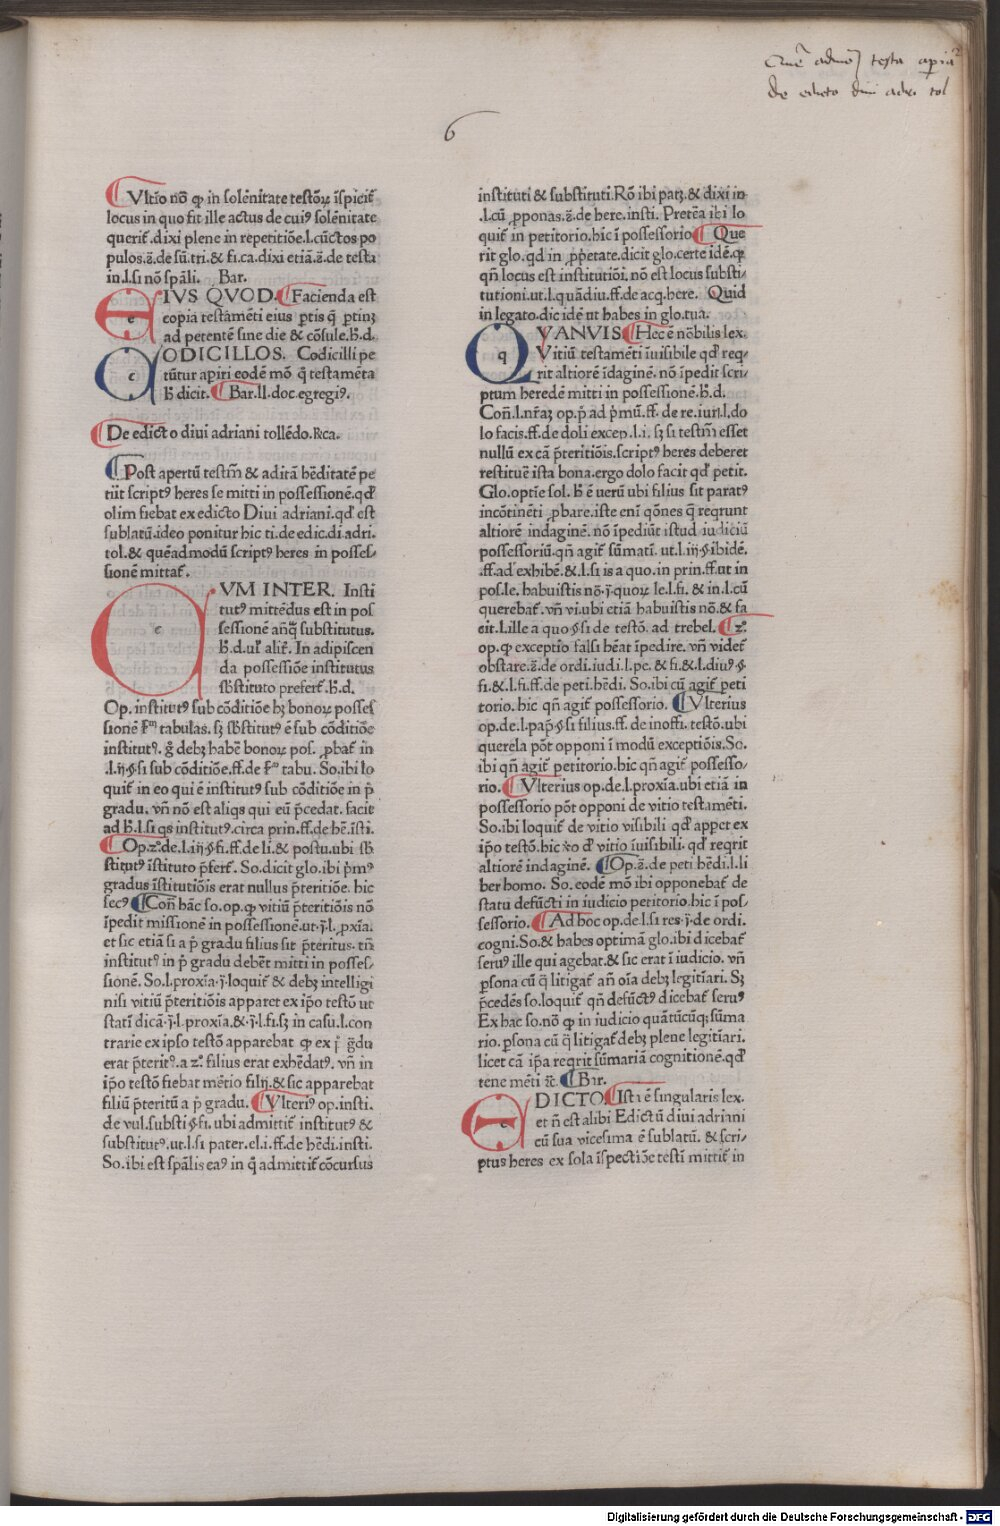 Quē admoꝫ testa apia
De edicto diui adri tol
6
Vltīo nō ꝙ in solēnitate testōꝝ īspicit̄
locus in quo fit ille actus de cuiꝰ solēnitate
querit̄.dixi plene in repetitiōe.l.cūctos po
pulos.ā.de sū.tri.& fi.ca.dixi etiā.ā.de testa
in.l.si nō spāli. Bar.
EIVS QVOD. Facienda est
copia testamēti eius ꝑtis q̄ ꝑtinꝫ
ad petentē sine die & cōsule.h̄.d.
CODICILLOS. Codicilli pe
tūtur aꝑiri eodē mō q̄ testamēta
h̄ dicit. Bar.ll.doc.egregiꝰ.
De edicto diui adriani tollēdo.Rca.
Post apertū testm̄ & aditā hēditatē pe
tiit scriptꝰ heres se mitti in possessionē.qđ
olim fiebat ex edicto Diui adriani.qđ est
sublatū.ideo ponitur hic ti.de edic.di.adri.
tol.& quēadmodū scriptꝰ heres in posses/
sionē mittat̄.
CVM INTER. Insti
tutꝰ mittēdus est in pos
sessionē anq̄ substitutus.
h̄.d.ul' alit̄. In adipiscen
da possessiōe institutus
sb̄stituto prefert̄.h̄.d.
Op. institutꝰ sub cōditiōe hꝫ bonoꝝ posses
sionē ẜm tabulas. sꝫ sb̄stitutꝰ ē sub cōditiōe
institutꝰ. g̊ debꝫ habē bonoꝝ pos. ꝓbat̄ in
.l.ij.§.si sub cōditiōe.ff.de ẜm tabu. So.ibi lo
quit̄ in eo qui ē institutꝰ sub cōditiōe in p̄
gradu. vn̄ nō est aliqs qui eū p̄cedat. facit
ad h̄.l.si qs institutꝰ.circa prin.ff.de hē.īsti.
Op.zͦ.de.l.iij.§.fi.ff.de li.& postu.ubi sb̄
stitutꝰ īstituto p̄fert̄. So.dicit glo.ibi p̄mꝰ
gradus īstitutiōis erat nullus p̄teritiōe. hic
secꝰ Con̄ hāc so.op.ꝙ vitiū p̄teritiōis nō
īpedit missionē in possessionē.ut.j̄.l. ꝓxīa.
et sic etiā si a p̄ gradu filius sit p̄teritus. tn̄
institutꝰ in p̄ gradu debēt mitti in posses/
sionē. So.l.proxīa.j̄.loquit̄ & debꝫ intelligi
nisi vitiū p̄teritiōis apparet ex ip̄o testō ut
statī dicā.j̄.l.proxīa.&.j̄.l.fi.sꝫ in casu.l.con
trarie ex ipso testō apparebat ꝙ ex j̊ g̊du
erat p̄teritꝰ.a zͦ. filius erat exhēdatꝰ. vn̄ in
ip̄o testō fiebat mētio filij.& sic apparebat
filiū p̄teritū a p̄ gradu. Vlteriꝰ op.insti.
de vul.substi.§.fi. ubi admittit̄ institutꝰ &
substitutꝰ.ut.l.si pater.el.i.ff.de hēdi.insti.
So.ibi est spālis eaꝰ in q̄ admittit̄ cōcursus
instituti & substituti. Rō ibi patꝫ.& dixi in
.l.cū ꝓponas.ā.de here.insti. Pretēa ibi lo
quit̄ in petitorio.hic ī possessorio Que
rit glo.qd in ꝓp̄etate.dicit glo.certe idē.ꝙ
qn̄ locus est institutiōi. nō est locus substi/
tutioni.ut.l.quādiu.ff.de acq.here. Quid
in legato.dic idē ut habes in glo.tua.
QVANVIS Hec ē nōbilis lex.
Vitiū testamēti īuisibile qđ req/
rit altiorē īdaginē. nō īpedit scri/
ptum heredē mitti in possessionē.h̄.d.
Con̄.l.nr̄aꝫ op.p̄ ad p̄mū.ff. de re.iur.l.do
lo facis.ff.de doli excep.l.i. sꝫ si testm̄ esset
nullū ex cā p̄teritiōis.scriptꝰ heres deberet
restituē ista bona.ergo dolo facit qđ petit.
Glo.optīe sol. h̄ ē uerū ubi filius sit paratꝰ
incōtinēti ꝓbare.iste enī qōnes q̄ reqrunt
altiorē indaginē. nō īpediūt istud iudiciū
possessoriū.qn̄ agit̄ sūmati. ut.l.iij.§.ibidē.
.ff.ad exhibē.&.l.si is a quo.in prin.ff.ut in
pos.le. habuistis nō.j̄.quoꝝ le.l.fi. & in.l.cū
querebat̄. vn̄ vi.ubi etiā habuistis nō.& fa
cit.l.ille a quo.§.si de testō. ad trebel. zͦ.
op.ꝙ exceptio falsi hēat īpedire. vn̄ videt̄
obstare.ā.de ordi.iudi.l.pe.& fi.&.l.diuꝰ.§.
fi.&.l.fi.ff.de peti.hēdi. So.ibi cū agit̄ peti
torio. hic qn̄ agit̄ possessorio. Vlterius
op.de.l.pap̄.§.si filius.ff. de inoffi. testō.ubi
querela pōt opponi ī modū exceptiōis.So.
ibi qn̄ agit̄ petitorio.hic qn̄ agit̄ possesso/
rio. Vlterius op.de.l.proxīa.ubi etiā in
possessorio pōt opponi de vitio testamēti.
So.ibi loquit̄ de vitio visibili qđ appet ex
ip̄o testō.hic ꝟo đ vitio īuisibili. qđ reqrit
altiorē indaginē. Op.ā.de peti hēdi.l.li
ber homo. So. eodē mō ibi opponebat̄ de
statu defūcti in iudicio petitorio.hic ī pos/
sessorio. Ad hoc op.de.l.si res.j̄.de ordi.
cogni.So.& habes optimā glo.ibi dicebat̄
seruꝰ ille qui agebat.& sic erat ī iudicio. vn̄
ꝑsona cū q̄ litigat̄ an̄ oīa debꝫ legitīari. Sꝫ
p̄cedēs so.loquit̄ qn̄ defūctꝰ dicebat̄ seruꝰ
Ex hac so.nō ꝙ in iudicio quātūcūqꝫ sūma
rio. ꝑsona cū q̄ litigat̄ debꝫ plene legitīari.
licet cā ip̄a reqrit sūmariā cognitionē.qđ
tene mēti &c̄. Bar.
EDICTO. Ista ē singularis lex.
et n̄ est alibi Edictū diui adriani
cū sua vicesima ē sublatū. & scri/
ptus heres ex sola īspectiōe testī mittit̄ in
Digitalisierung gefördert durch die Deutsche Forschungsgemeinschaft - DFG